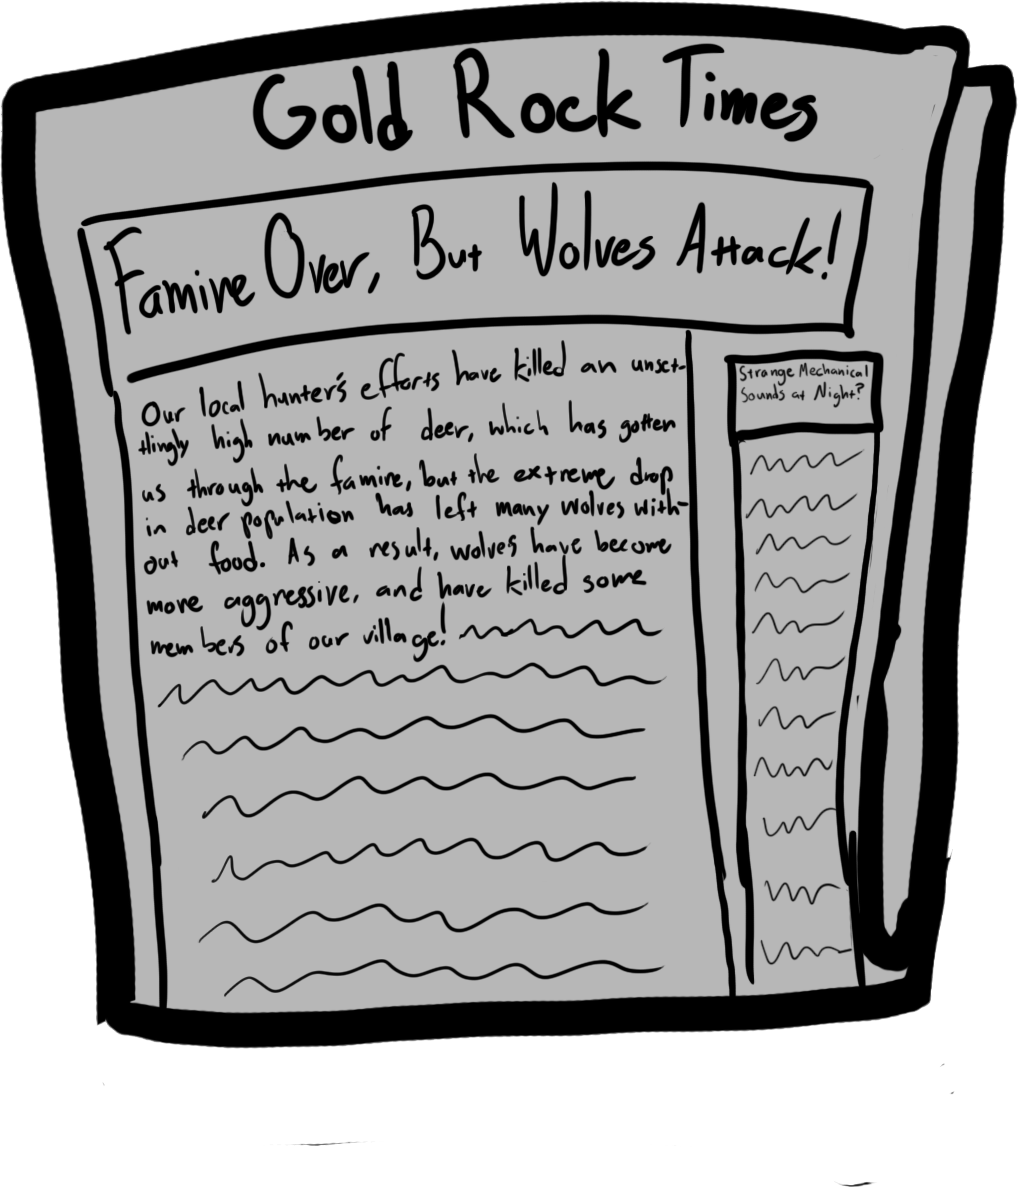 Gold Rock Times
Famine Over, But Wolves Attack!
Our local hunter's efforts have killed an unset-
tlingly high number of deer, which has gotten
us through the famine, but the extreme drop
in deer population has left many wolves with-
out food. As a result, wolves have become
more aggressive, and have killed some
members of our village!
Strange Mechanical
Sounds at Night?